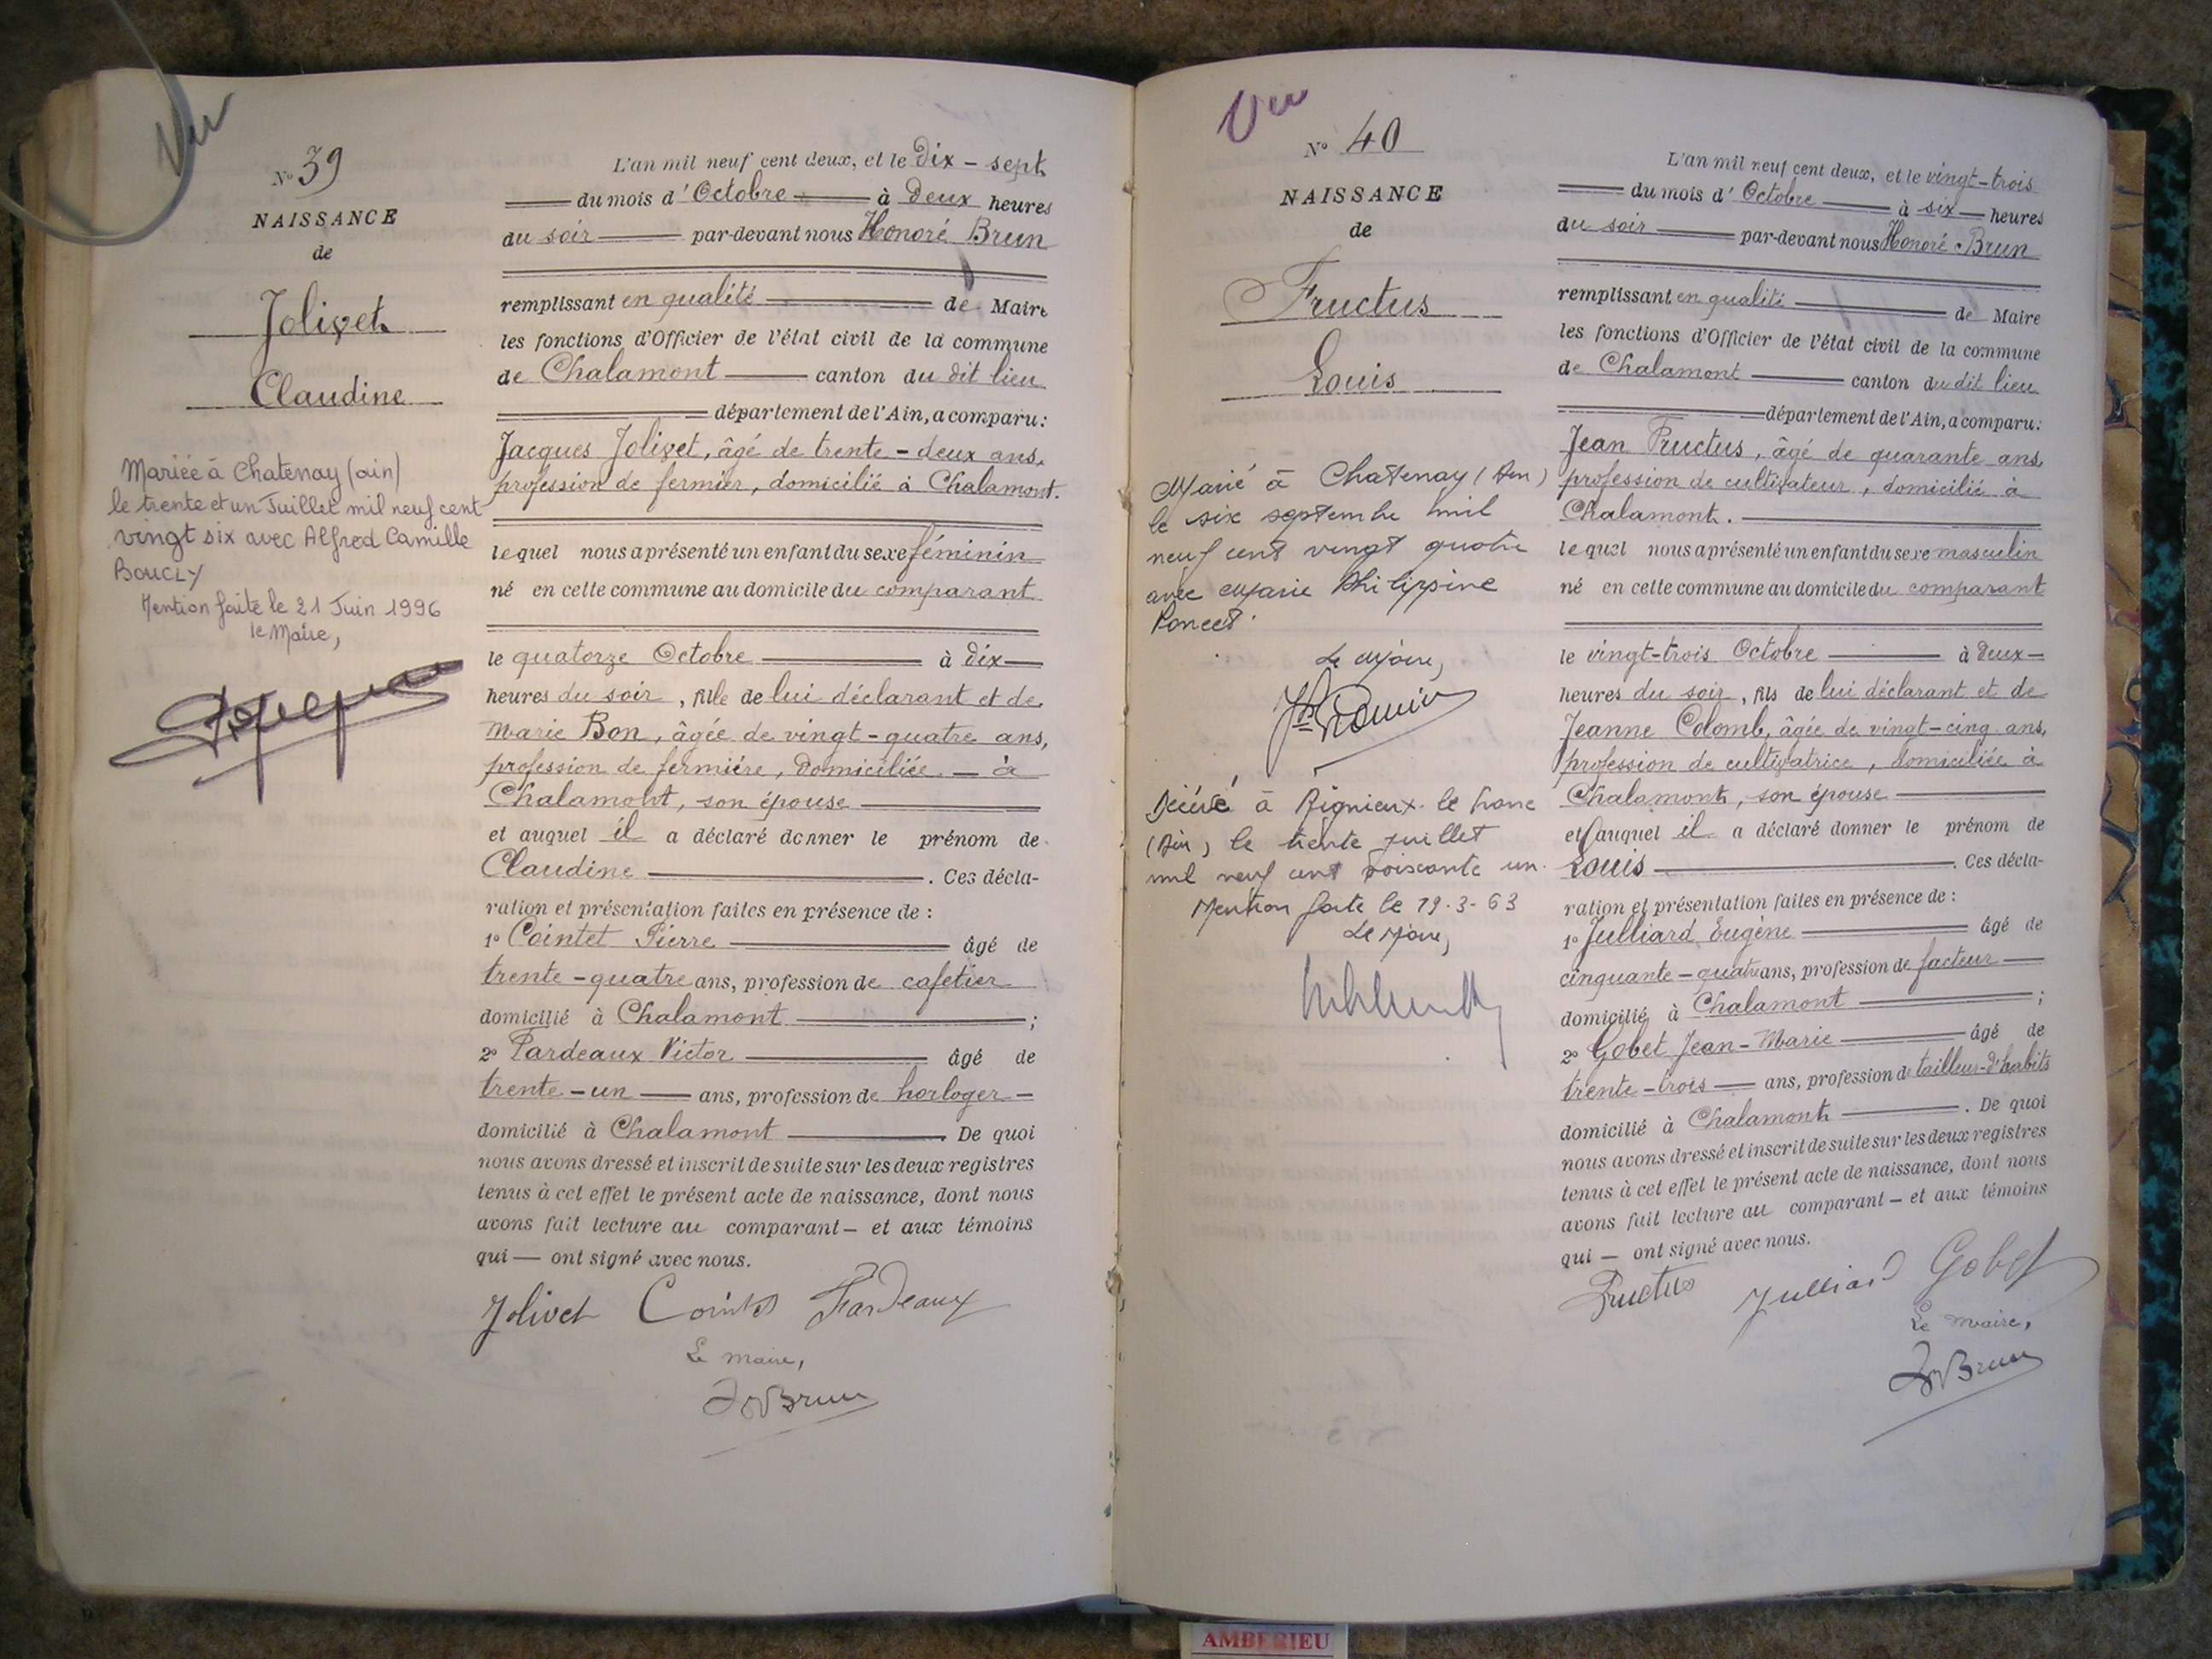 Vu
N° 39
NAISSANCE
de
Jolivet
Claudine
Mariée à Chatenay (ain)
le trente et un Juillet mil neuf cent
vingt six avec Alfred Camille
BOUCLY
Mention faite le 21 Juin 1996
le Maire,
L'an mil neuf cent deux, et le dix-sept
du mois d'Octobre à deux heures
du soir par-devant nous Honoré Brun
remplissant en qualité de Maire
les fonctions d'Officier de l'état civil de la commune
de Chalamont canton du dit lieu
département de l'Ain, a comparu:
Jacques Jolivet, âgé de trente-deux ans,
profession de fermier, domicilié à Chalamont.
lequel nous a présenté un enfant du sexe féminin
né en cette commune au domicile du comparant
le quatorze Octobre à dix
heures du soir, fille de lui déclarant et de
Marie Bon, âgée de vingt-quatre ans,
profession de fermière, domiciliée à
Chalamont, son épouse
et auquel il a déclaré donner le prénom de
Claudine. Ces décla-
ration et présentation faites en présence de :
1° Cointet Pierre âgé de
trente-quatre ans, profession de cafetier
domicilié à Chalamont ;
2° Tardeaux Victor âgé de
trente-un ans, profession de horloger
domicilié à Chalamont. De quoi
nous avons dressé et inscrit de suite sur les deux registres
tenus à cet effet le présent acte de naissance, dont nous
avons fait lecture au comparant - et aux témoins
qui - ont signé avec nous.
Jolivet Cointet Tardeaux
Le maire,
Brun
Vu
N° 40
NAISSANCE
de
Fructus
Louis
Marié à Chatenay (Ain)
le six septembre mil
neuf cent vingt quatre
avec Marie Philippine
Poncet.
Le Maire,
Décédé à Rignieux-le-franc
(Ain) le trente juillet
mil neuf cent soixante un.
Mention faite le 19.3-63
Le Maire,
L'an mil neuf cent deux, et le vingt-trois
du mois d'Octobre à six heures
du soir par-devant nous Honoré Brun
remplissant en qualité de Maire
les fonctions d'Officier de l'état civil de la commune
de Chalamont canton du dit lieu
département de l'Ain, a comparu:
Jean Fructus, âgé de quarante ans,
profession de cultivateur, domicilié à
Chalamont.
lequel nous a présenté un enfant du sexe masculin
né en cette commune au domicile du comparant
le vingt-trois Octobre à deux
heures du soir, fils de lui déclarant et de
Jeanne Colomb, âgée de vingt-cinq ans,
profession de cultivatrice, domiciliée à
Chalamont, son épouse
et auquel il a déclaré donner le prénom de
Louis. Ces décla-
ration et présentation faites en présence de :
1° Julliard Eugène âgé de
cinquante-quatre ans, profession de facteur
domicilié à Chalamont ;
2° Gobet Jean-Marie âgé de
trente-trois ans, profession de tailleur-d'habits
domicilié à Chalamont. De quoi
nous avons dressé et inscrit de suite sur les deux registres
tenus à cet effet le présent acte de naissance, dont nous
avons fait lecture au comparant - et aux témoins
qui - ont signé avec nous.
Fructus Julliard Gobet
Le maire,
Brun
AMBERIEU